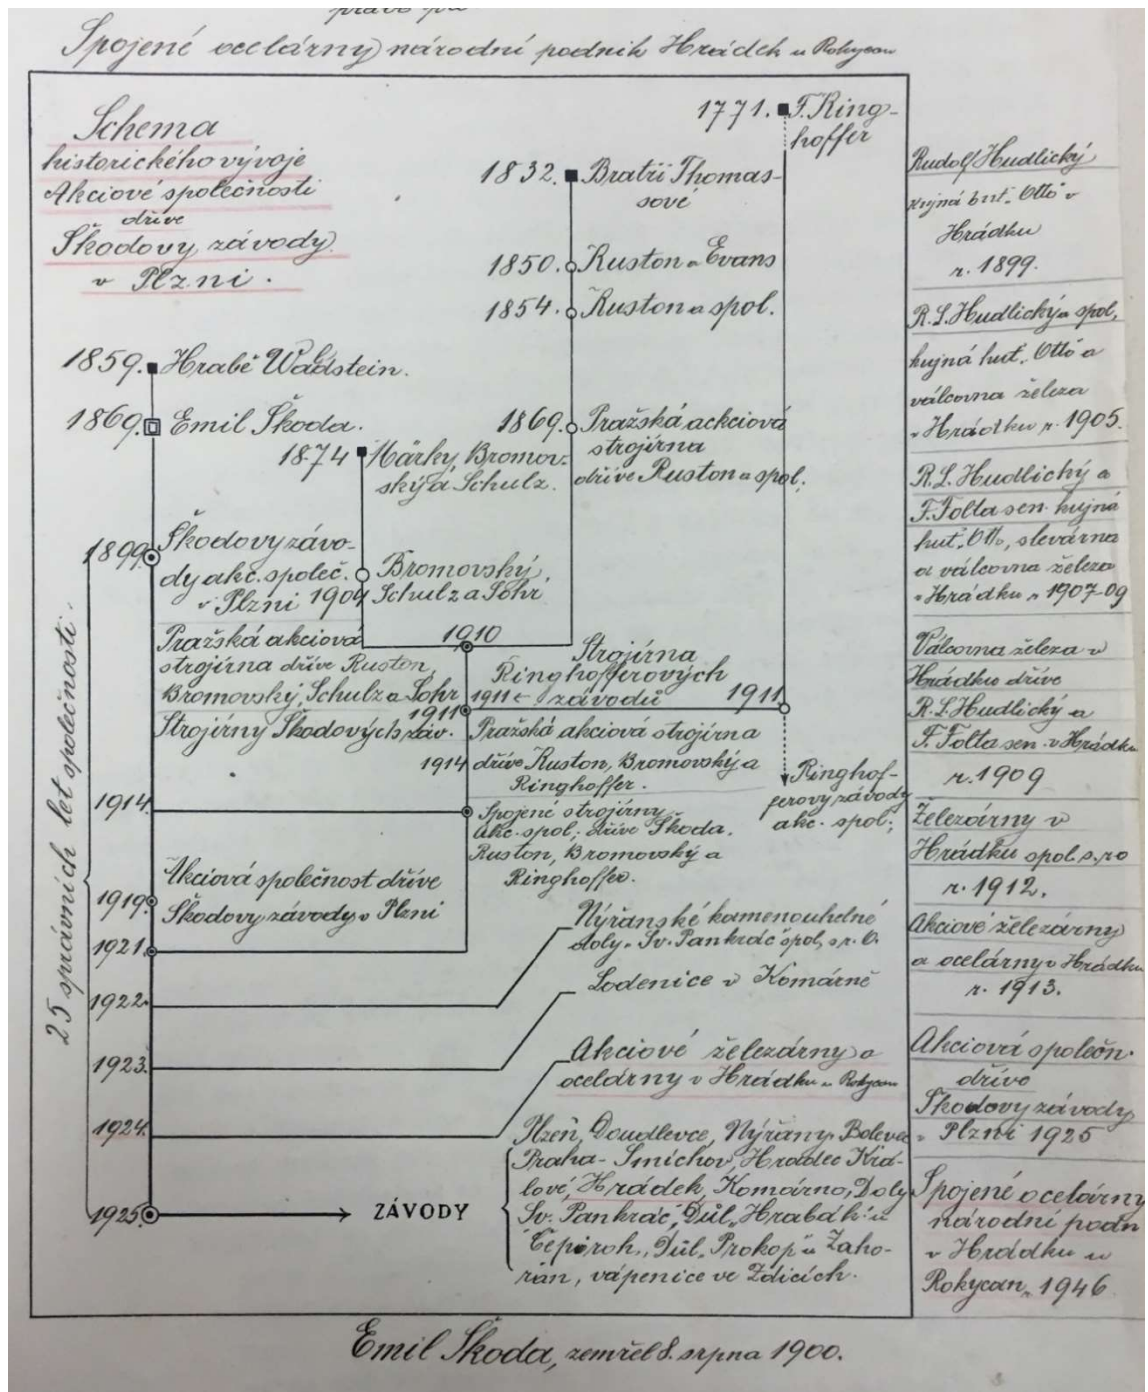 Spojené ocelárny národní podnik Hrádek u Rokycan
Schema
historického vývoje
Akciové společnosti
dříve
Škodovy závody
v Plzni.
1771. F. Ring-
hoffer
1832. Bratři Thomas-
sové
1850. Ruston a Evans
1854. Ruston a spol.
1859. Hrabě Waldstein.
1869. Emil Škoda.
1869. Pražská ackciová
strojírna
dříve Ruston a spol.
1874 Märky, Bromov-
ský a Schulz.
1899. Škodovy závo-
dy akc. společ.
v Plzni
1904 Bromovský,
Schulz a Sohr
1910
Pražská akciová
strojírna dříve Ruston,
Bromovský, Schulz a Sohr
1911
Strojírny Škodových záv.
Strojírna
Ringhofferových
1911 ← závodů 1911
Pražská akciová strojírna
1914 dříve Ruston, Bromovský a
Ringhoffer.
Ringhof-
ferovy závody
akc. spol;
1914. Spojené strojírny
Akc. spol; dříve Škoda.
Ruston, Bromovský a
Ringhoffer.
1919. Akciová společnost dříve
Škodovy závody v Plzni
1921.
1922. Nýřanské kamenouhelné
doly „Sv. Pankrác" spol, s r. O.
1923. Lodenice v Komárně
1924. Akciové železárny a
ocelárny v Hrádku u Rokycan
1925. ZÁVODY
Plzeň, Doudlevce, Nýřany, Bolevec
Praha-Smíchov, Hradec Krá-
lové, Hrádek, Komárno, Doly
Sv. Pankrác", Důl „Hrabák" u
Čepiroh., Důl „Prokop" u Zaho-
řan, vápenice ve Zdicích.
25 správních let společnosti.
Rudolf Hudlický
kujná huť „Otto" v
Hrádku
r. 1899.
R. L. Hudlický a spol,
kujná huť „Otto a
válcovna železa
v Hrádku r. 1905.
R. L. Hudlický a
F. Folta sen. kujná
huť „Otto, slevárna
a válcovna železa
v Hrádku r. 1907-09
Válcovna železa v
Hrádku dříve
R. L. Hudlický a
F. Folta sen. v Hrádku
r. 1909
Železárny v
Hrádku spol. s. r o
r. 1912.
Akciové železárny
a ocelárny v Hrádku
r. 1913.
Akciová společn.
dříve
Škodovy závody
v Plzni 1925
Spojené ocelárny
národní podn
v Hrádku u
Rokycan r. 1946
Emil Škoda, zemřel 8. srpna 1900.